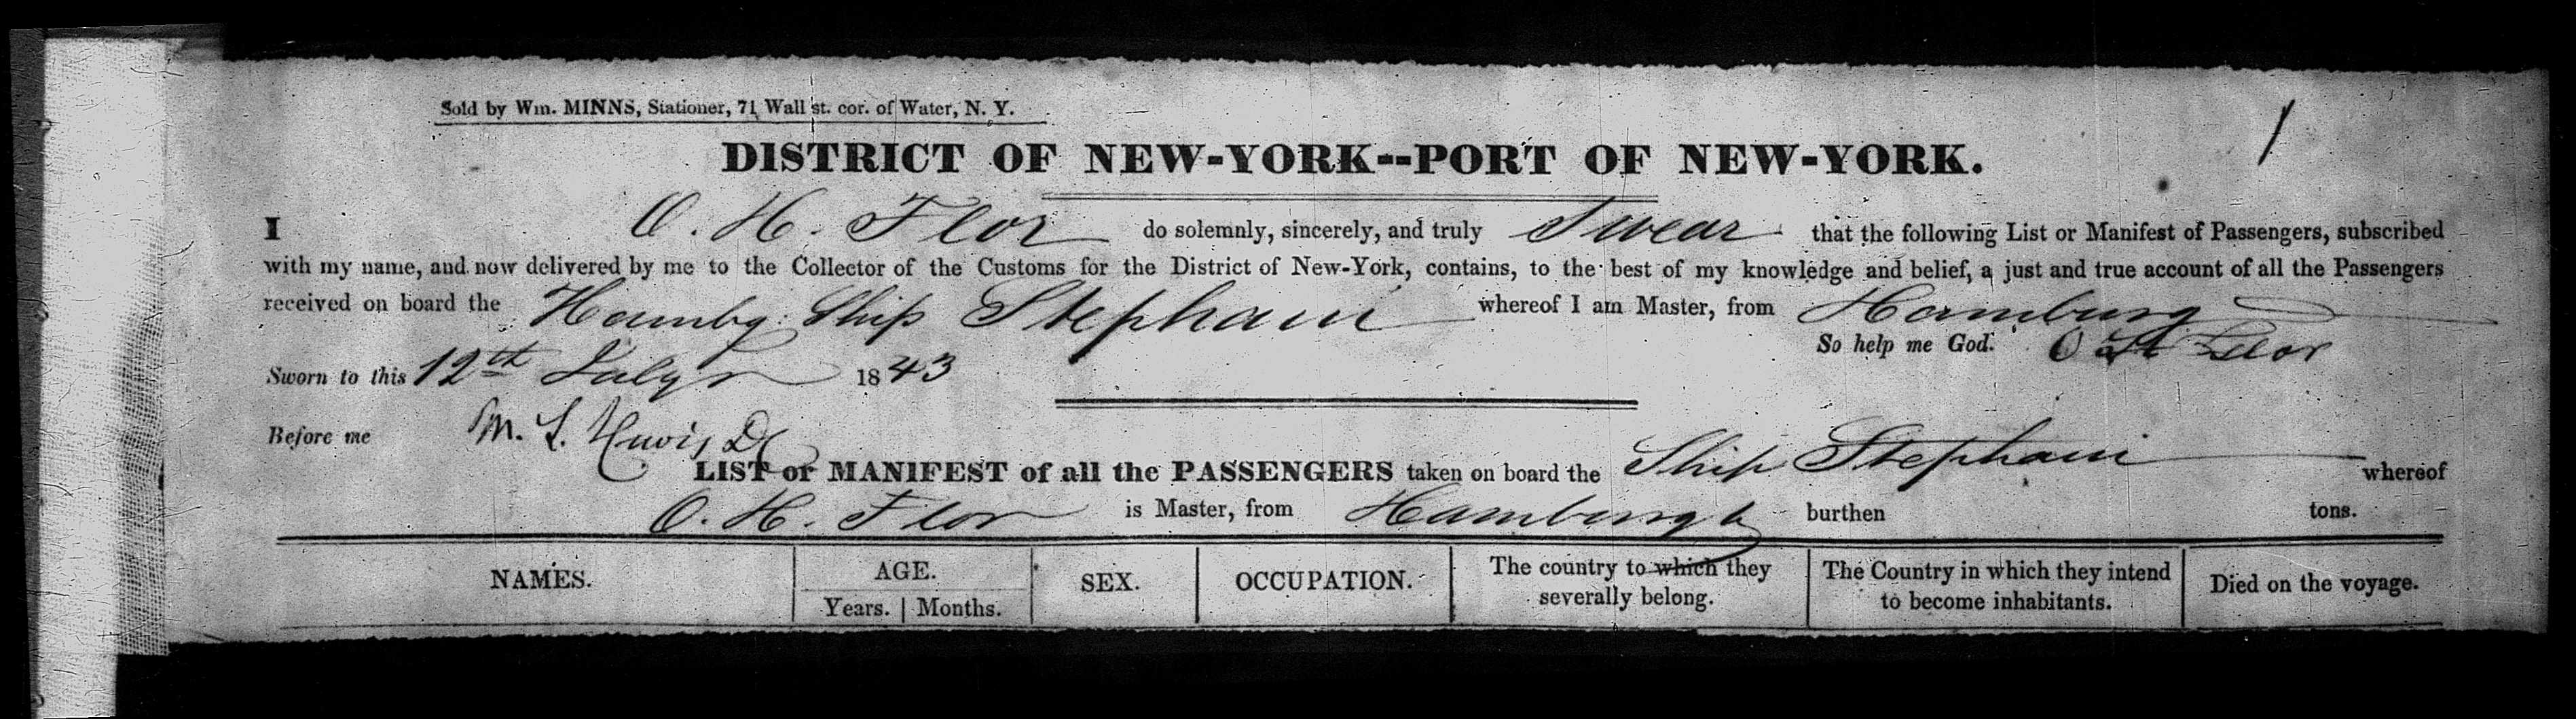 Sold by Wm. MINNS, Stationer, 71 Wall st. cor. of Water, N. Y.
1
DISTRICT OF NEW-YORK--PORT OF NEW-YORK.
I O. H. Flor do solemnly, sincerely, and truly Swear that the following List or Manifest of Passengers, subscribed
with my name, and now delivered by me to the Collector of the Customs for the District of New-York, contains, to the best of my knowledge and belief, a just and true account of all the Passengers
received on board the Hambg. Ship Stephani whereof I am Master, from Hamburg
So help me God. O H Flor
Sworn to this 12th July 1843
Before me M.
LIST or MANIFEST of all the PASSENGERS taken on board the Ship Stephani whereof
O. H. Flor is Master, from Hamburgh burthen tons.
NAMES. AGE. SEX. OCCUPATION. The country to which they severally belong. The Country in which they intend to become inhabitants. Died on the voyage.
Years. Months.